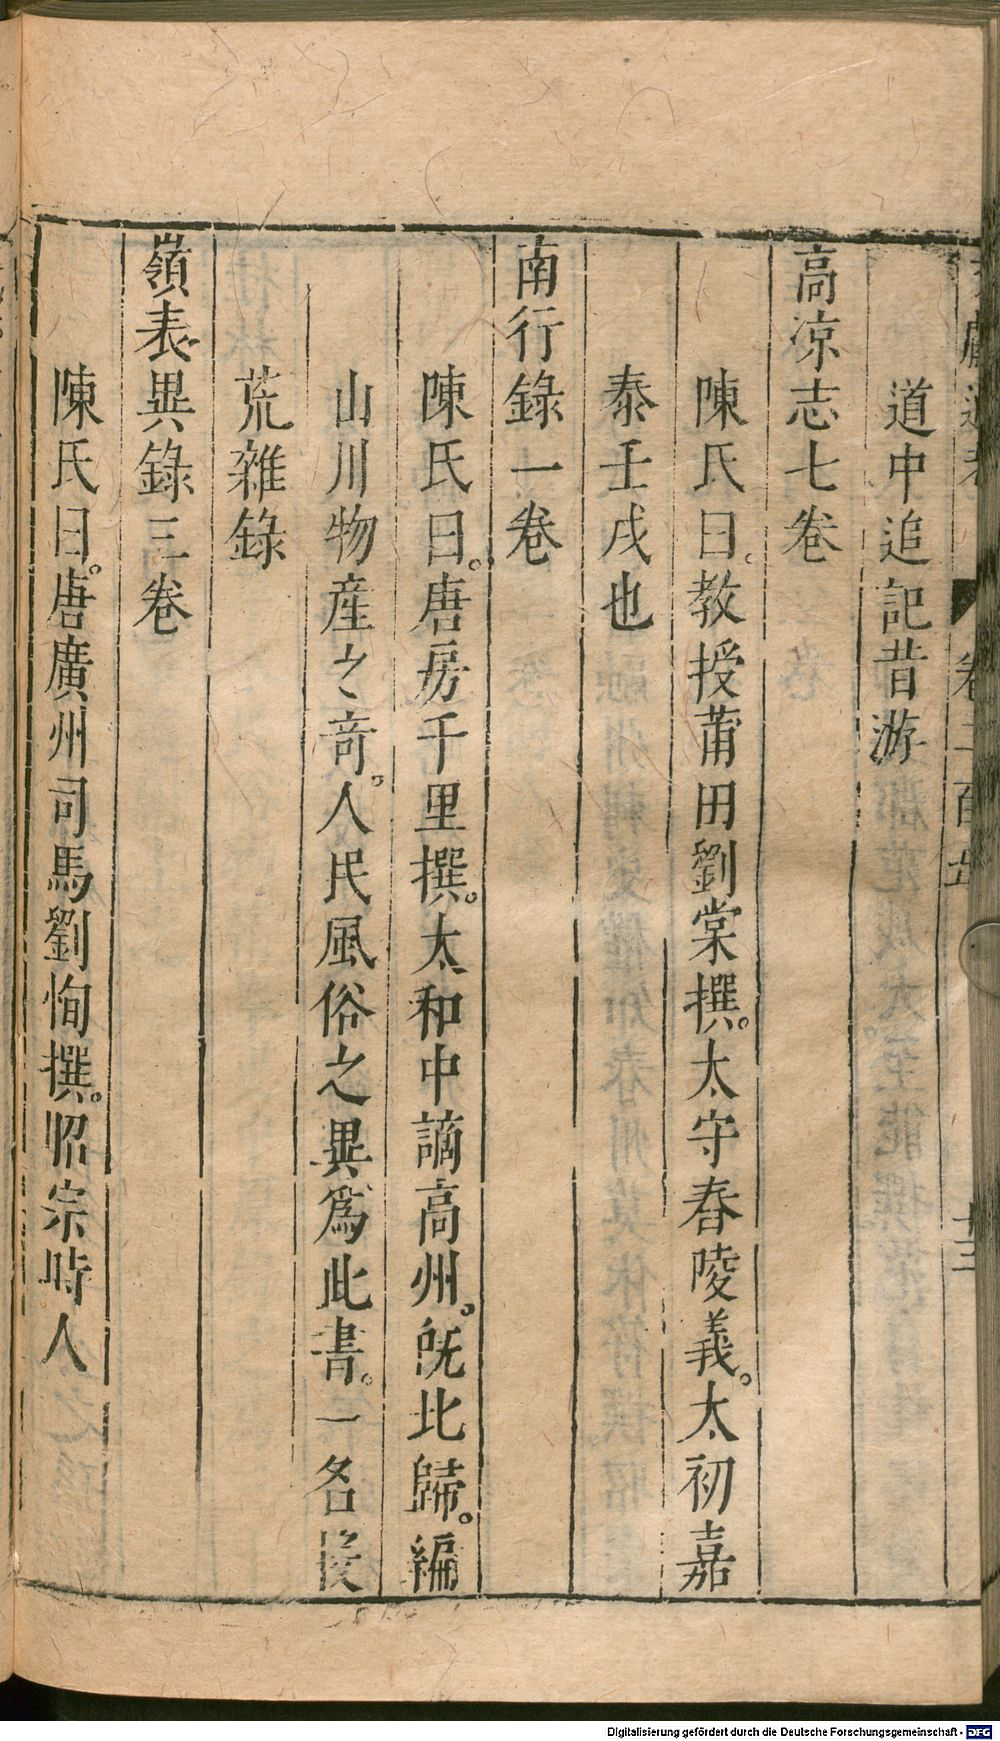 道中追記昔游
高凉志七卷
陳氏曰。教授莆田劉棠撰。太守春陵義。太初嘉
泰壬戌也
南行錄一卷
陳氏曰。唐房千里撰。太和中謫高州。旣北歸。編
山川物産之竒。人民風俗之異爲此書。一名投
荒雜錄
嶺表異錄三卷
陳氏曰。唐廣州司馬劉恂撰。昭宗時人
Digitalisierung gefördert durch die Deutsche Forschungsgemeinschaft - DFG